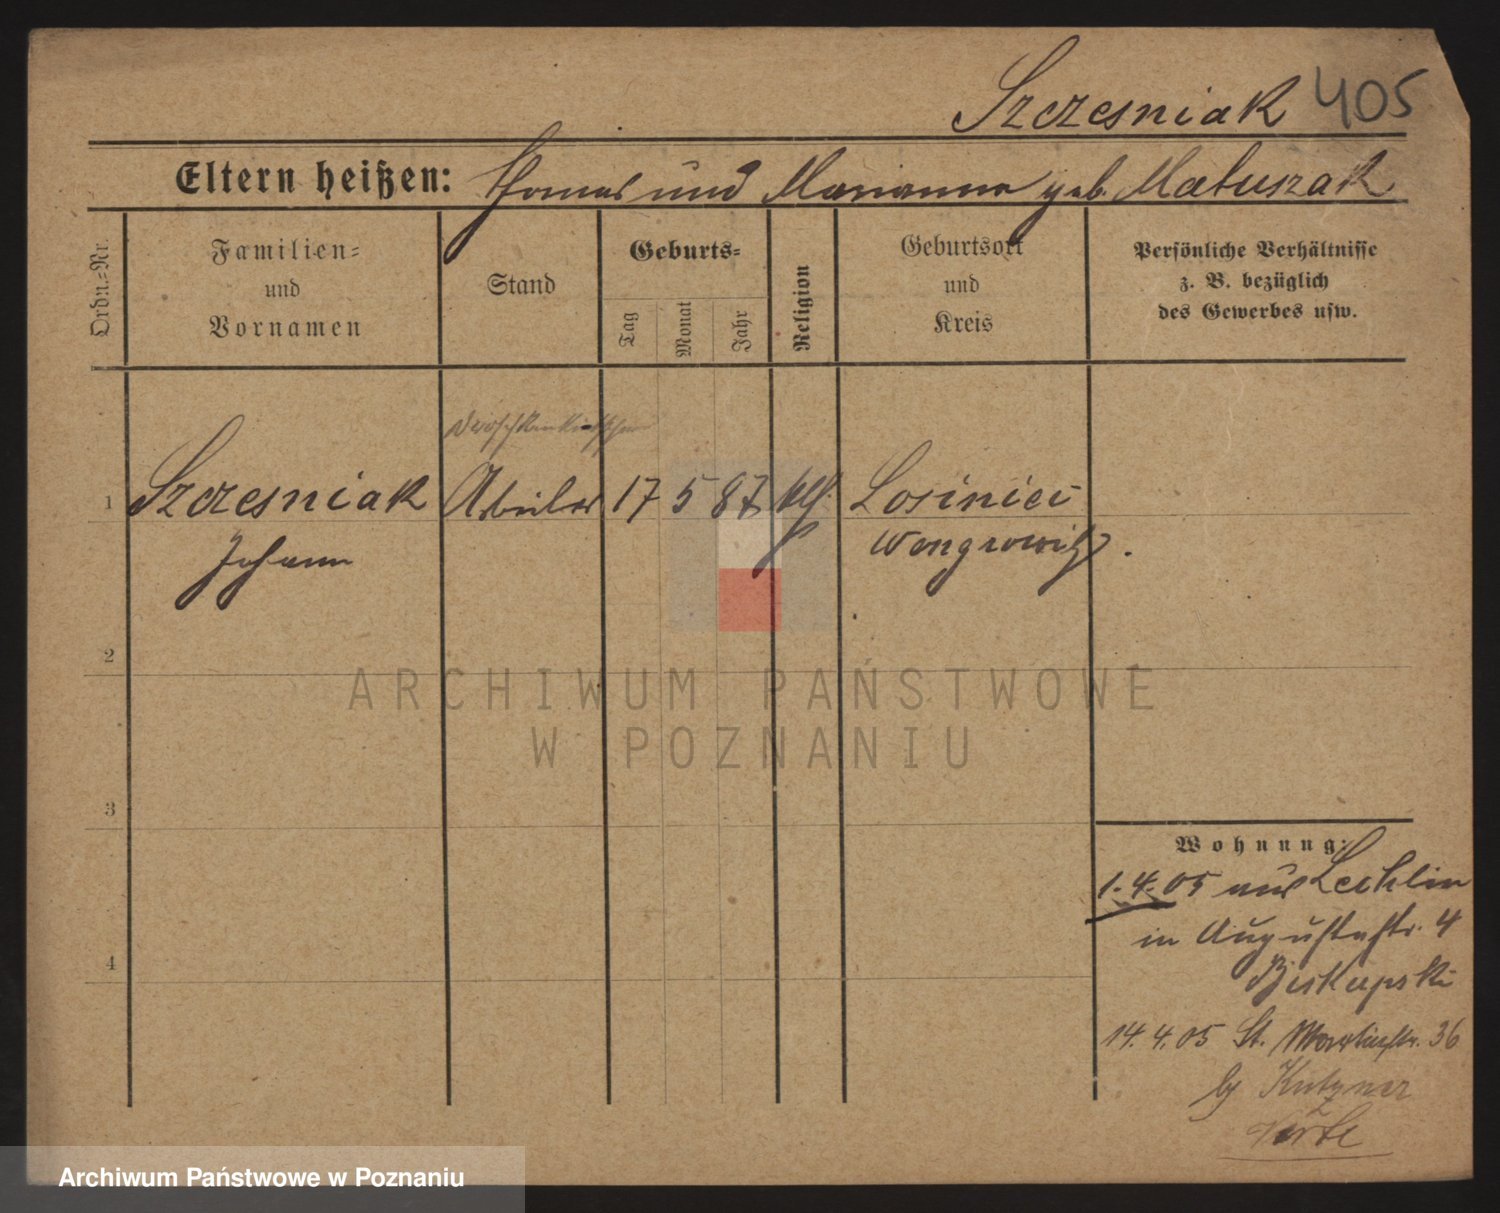 Szczesniak 405
Eltern heißen: Thomas und Marianna geb. Matuszak
Ordn.-Nr.
Familien-
und
Vornamen
Stand
Geburts-
Tag
Monat
Jahr
Religion
Geburtsort
und
Kreis
Persönliche Verhältnisse
z. B. bezüglich
des Gewerbes usw.
Droschkenkutscher
1 Szczesniak Arbeiter 17 5 87 kth. Losiniec
Johann Wongrowitz.
2
ARCHIWUM PAŃSTWOWE
W POZNANIU
3
4
Wohnung:
1.4.05 aus Lechlin
in Augustastr. 4
Biskupski
14.4.05 St. Martinstr. 36
by Kutzner
Archiwum Państwowe w Poznaniu